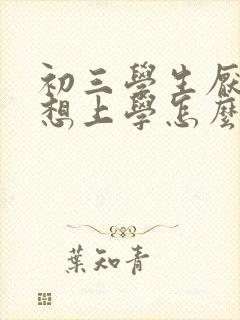 初三學生厭
想上學怎麼
葉知青